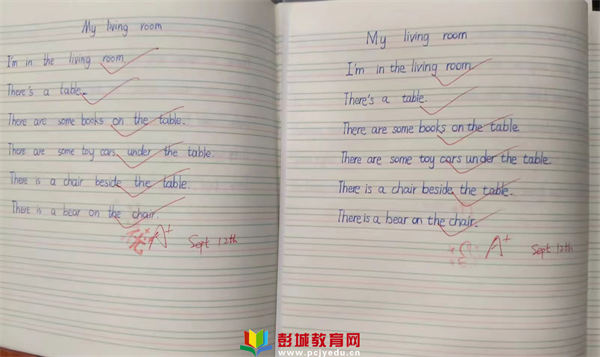 My living room
I'm in the living room
There's a table.
There are some books on the table.
There are some toy cars under the table.
There is a chair beside the table.
There is a bear on the chair.
优 A+ Sept 12th
My living room
I'm in the living room
There's a table.
There are some books on the table.
There are some toy cars under the table.
There is a chair beside the table.
There is a bear on the chair.
A+ Sept 12th
彭城教育网
www.pcjyedu.cn